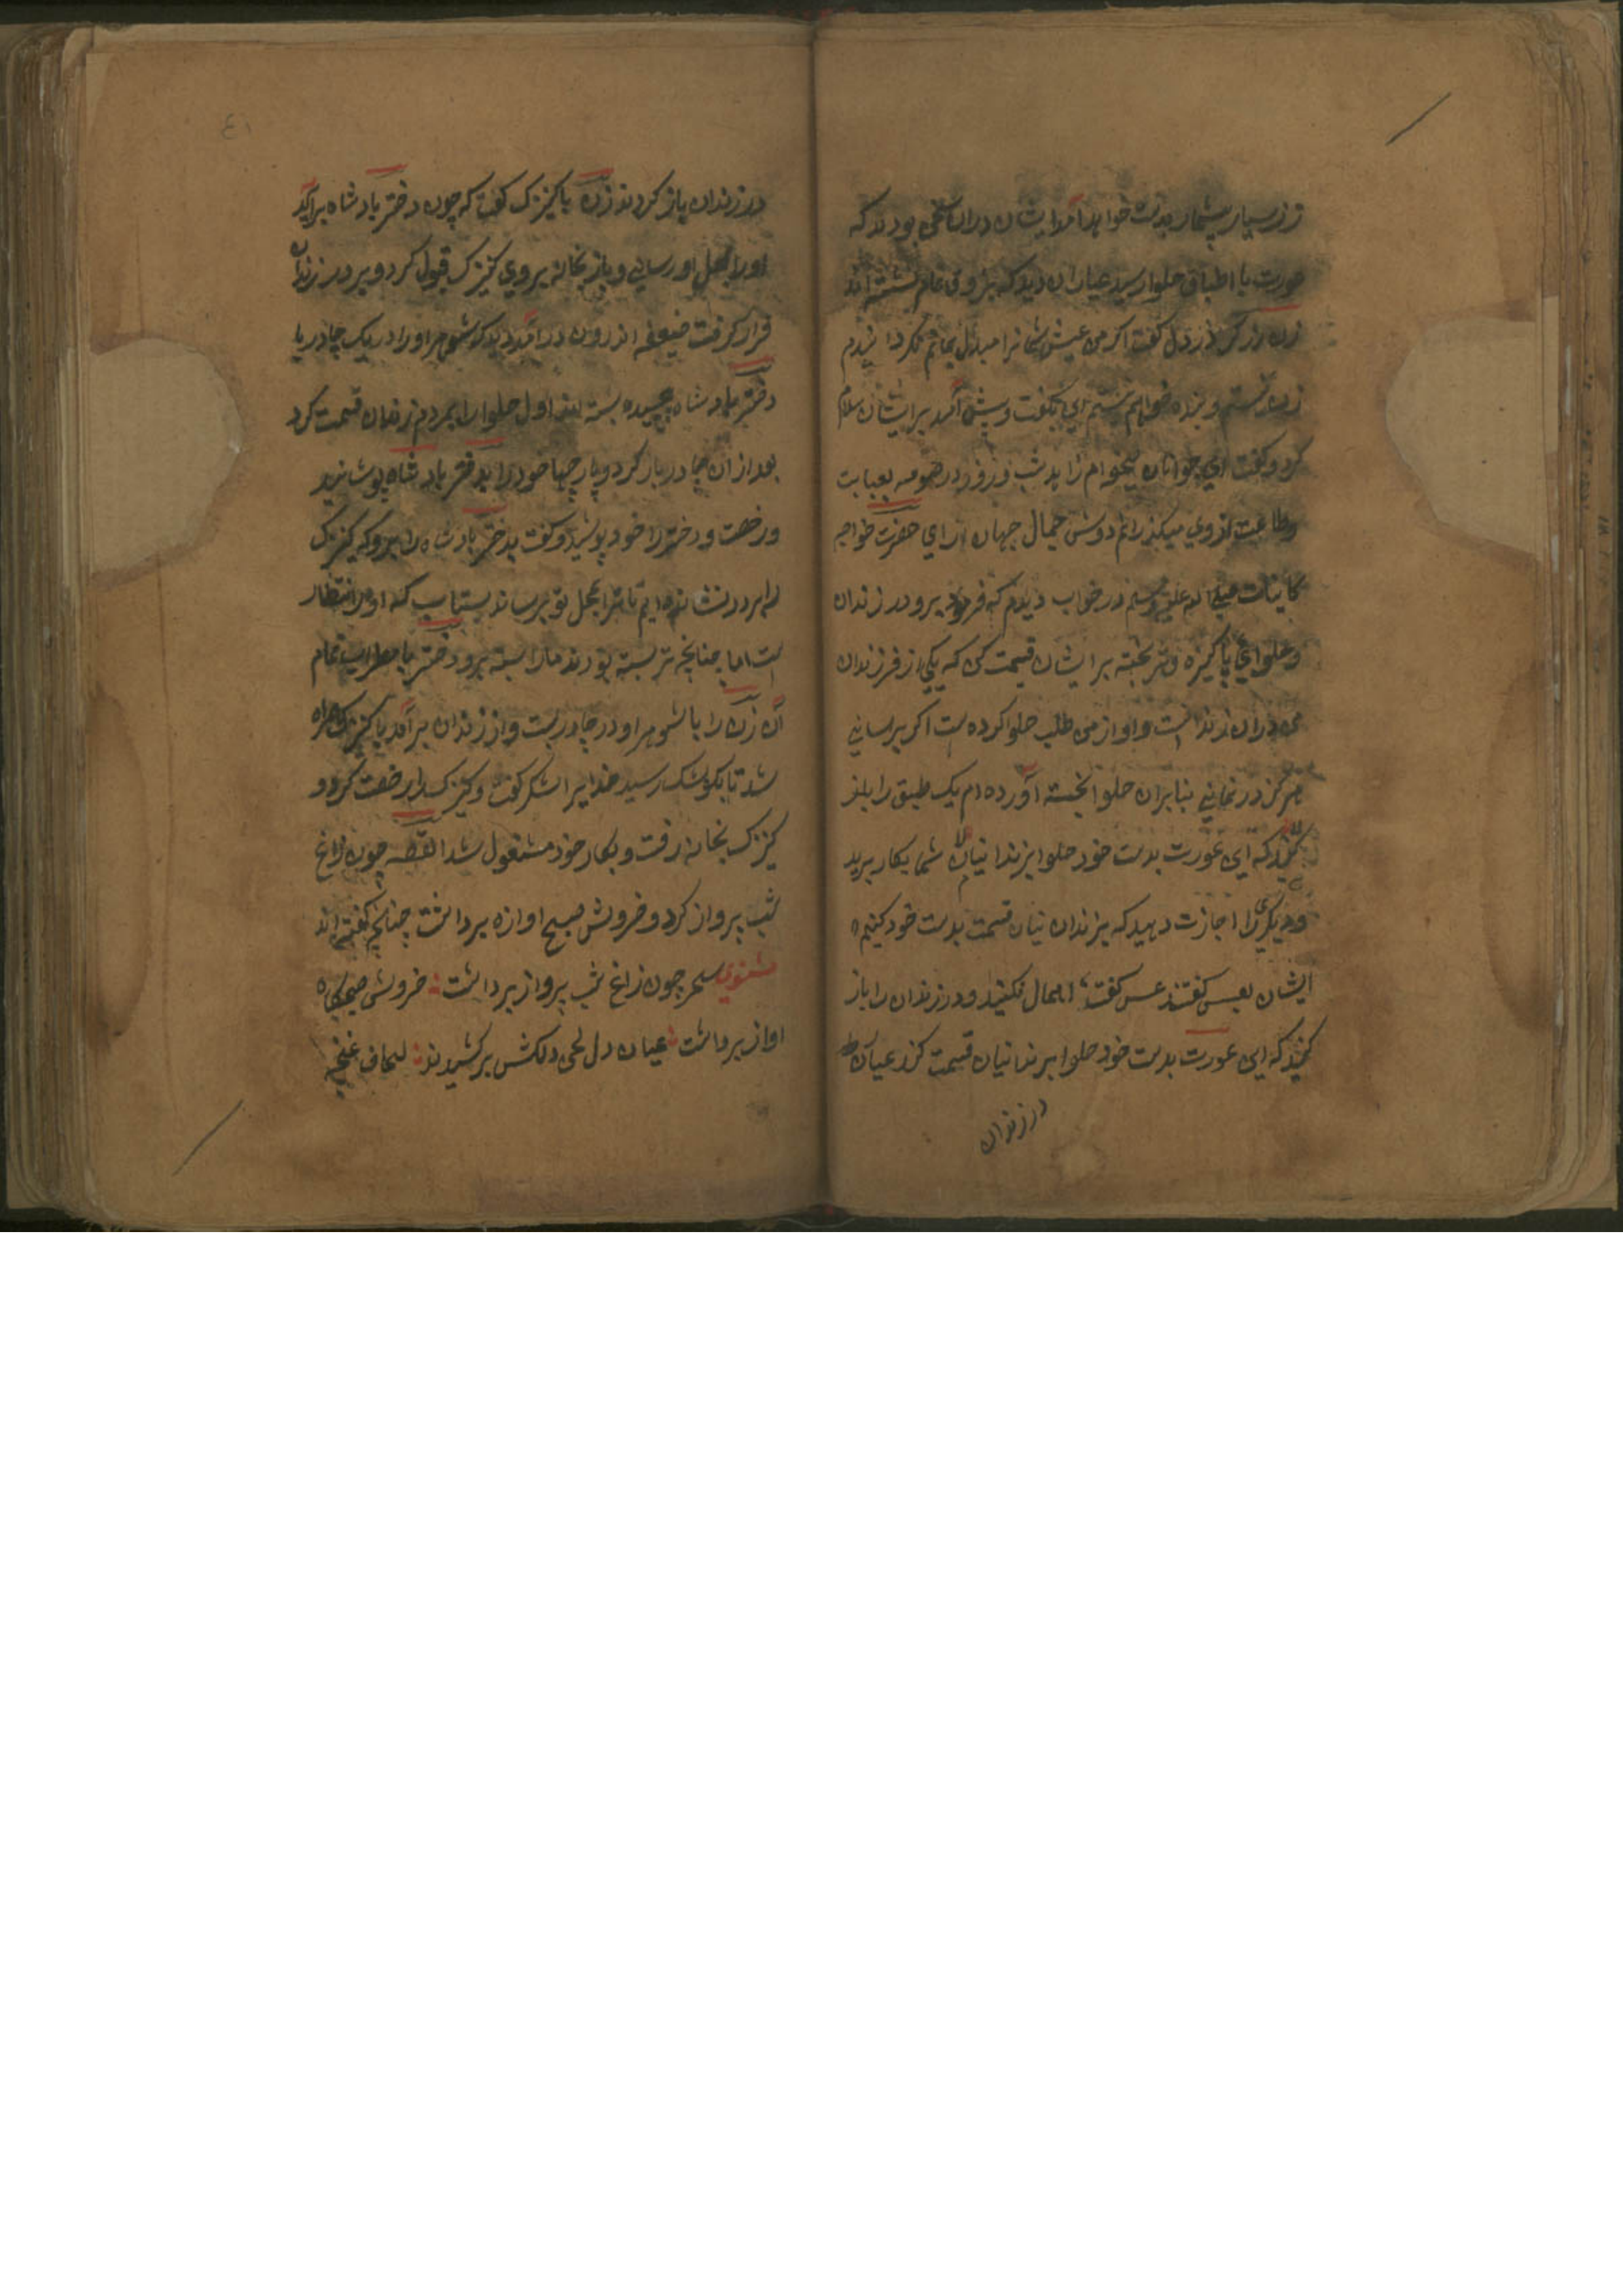 زر بسیار بیشمار بدست خواهد آمد ایشان دران سخن بودند که
عورت با اطباق حلوا رسید عیاران دید که بذوق تمام نشسته اند
زن در دل گفت اگر من عیش شما را مبدل بماتم نگردانیدم
زن نیستم و بنده خدا هم نیستم این بگفت و پیش آمد بر ایشان سلام
کرد و گفت ای جوانان میخواهم زاهد شب و روز در صومعه بعبادت
و طاعت ایزدی میگذرانم دوش جمال جهان آرای حضرت خواجه
کاینات صلی الله علیه وسلم در خواب دیدم که فرمود برو در زندان
و حلوای پاکیزه و تر پخته بر ایشان قسمت کن که یکی از فرزندان
من دران زندانست و او از من طلب حلوا کرده است اگر برسانی
هرگز در نمانی بنابران حلوا پخته آورده ام یک طبق را
کنید که این عورت بدست خود حلوا بزندانیان شما بکار برید
و دیگر را اجازت دهید که بزندانیان قسمت بدست خود کنیم
ایشان بعسس گفتند عسس گفت اهمال نکنید و در زندان را باز
کنید که این عورت بدست خود حلوا بزندانیان قسمت کند عیاران
در زندان
در زندان باز کردند زن با کنیزک گفت که چون دختر بادشاه برآید
او را بمحل او رسانی و باز بخانه بروی کنیزک قبول کرد و بر در زندان
قرار گرفت ضعیفه اندرون درآمد دید که شوهر او را در یک چادر با
دختر بادشاه پیچیده بسته اند اول حلوا را بمردم زندان قسمت کرد
بعد ازان چادر باز کرد و پارچها خود را بدختر بادشاه پوشانید
و رخت دختر را خود پوشید و گفت بدختر بادشاه را برو که کنیزک
را بر در نشانده ایم تا ترا بمحل تو برساند بشتاب که او در انتظار
است اما چنانچه ترا بسته بودند مارا بسته برو دختر باضطراب تمام
آن زن را با شوهر او در چادر بست و از زندان برآمد با کنیزک همراه
شد تا بکوشک رسید خدایرا شکر گفت و کنیزک را رخصت کرد و
کنیزک بخانه رفت و بکار خود مشغول شد القصه چون زاغ
شب پرواز کرد و خروش صبح اوازه برداشت چنانچه گفته اند
مثنوی سحر چون زاغ شب پرواز برداشت : خروش صبحگاه
اواز برداشت : عیان دل لحن دلکش برکشیدند : لحاف غنچه